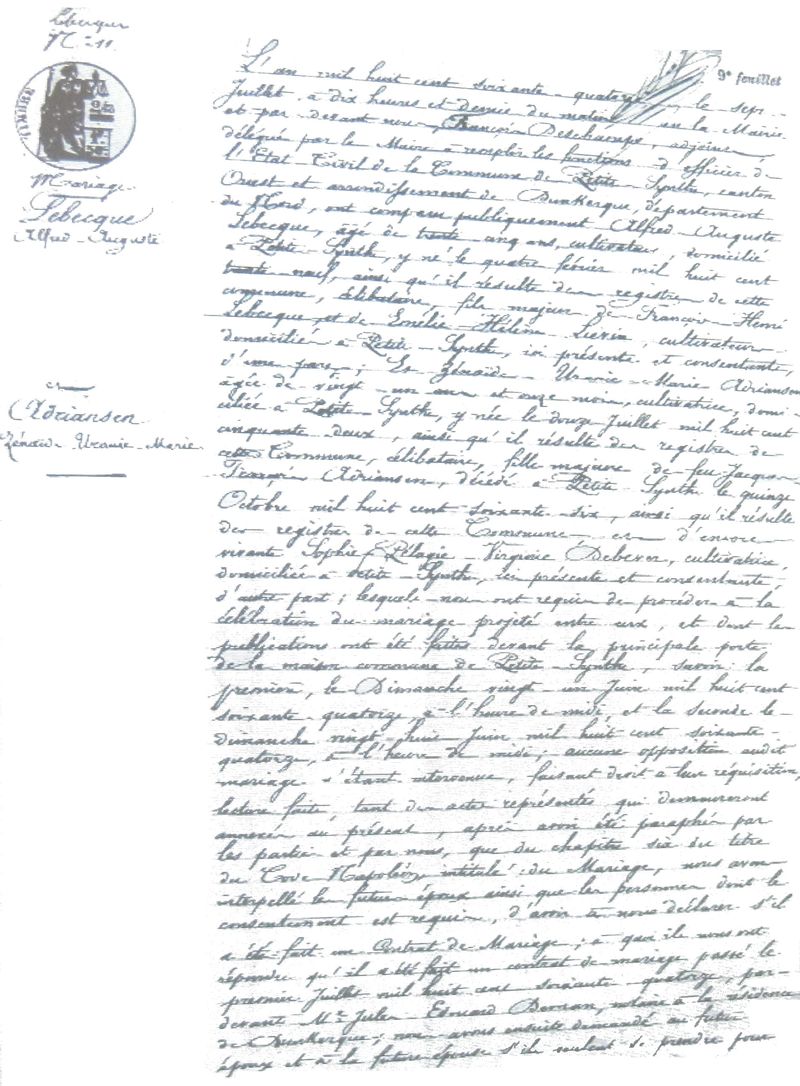 Lebecque
N° 11
9e feuillet
TIMBRE
Mariage
Lebecque
Alfred Auguste
et
Adriansen
Zénaïde Uranie Marie
L'an mil huit cent soixante quatorze, le sept
Juillet à dix heures et demie du matin, en la Mairie
et par devant nous, François Deschamps, adjoint
délégué par le Maire à remplir les fonctions d'officier de
l'Etat Civil de la Commune de Petite Synthe, canton
Ouest et arrondissement de Dunkerque, département
du Nord, ont comparu publiquement Alfred Auguste
Lebecque, âgé de trente cinq ans, cultivateur, domicilié
à Petite Synthe, y né le quatre février mil huit cent
trente neuf, ainsi qu'il résulte des registres de cette
commune, célibataire, fils majeur de François Henri
Lebecque et de Emélie Hélène Lievin, cultivateurs
domiciliés à Petite Synthe, ici présents et consentants,
d'une part; Et Zénaïde Uranie Marie Adriansen
âgée de vingt un ans et onze mois, cultivatrice, domi-
ciliée à Petite Synthe, y née le douze Juillet mil huit cent
cinquante deux, ainsi qu'il résulte des registres de
cette Commune, célibataire, fille majeure de feu Jacques
François Adriansen, décédé à Petite Synthe le quinze
Octobre mil huit cent soixante six, ainsi qu'il résulte
des registres de cette Commune et d'encore
vivante Sophie Pélagie Virginie Debever, cultivatrice,
domiciliée à Petite Synthe, ici présente et consentante,
d'autre part; lesquels nous ont requis de procéder à la
célébration du mariage projeté entre eux, et dont les
publications ont été faites devant la principale porte
de la maison commune de Petite Synthe, savoir: la
première, le Dimanche vingt un Juin mil huit cent
soixante quatorze, à l'heure de midi, et la seconde le
dimanche vingt huit Juin mil huit cent soixante
quatorze, à l'heure de midi; aucune opposition audit
mariage n'étant intervenue, faisant droit à leur réquisition,
lecture faite, tant des actes représentés qui demeureront
annexés au présent, après avoir été paraphés par
les parties et par nous, que du chapitre six du titre
du Code Napoléon intitulé: du Mariage, nous avons
interpellé les futurs époux ainsi que les personnes dont le
consentement est requis, d'avoir à nous déclarer s'il
a été fait un Contrat de Mariage; à quoi ils nous ont
répondu qu'il a été fait un contrat de mariage passé le
premier Juillet mil huit cent soixante quatorze, par-
devant Me Jules Edouard notaire à la résidence
de Dunkerque; nous avons ensuite demandé au futur
époux et à la future épouse s'ils veulent se prendre pour